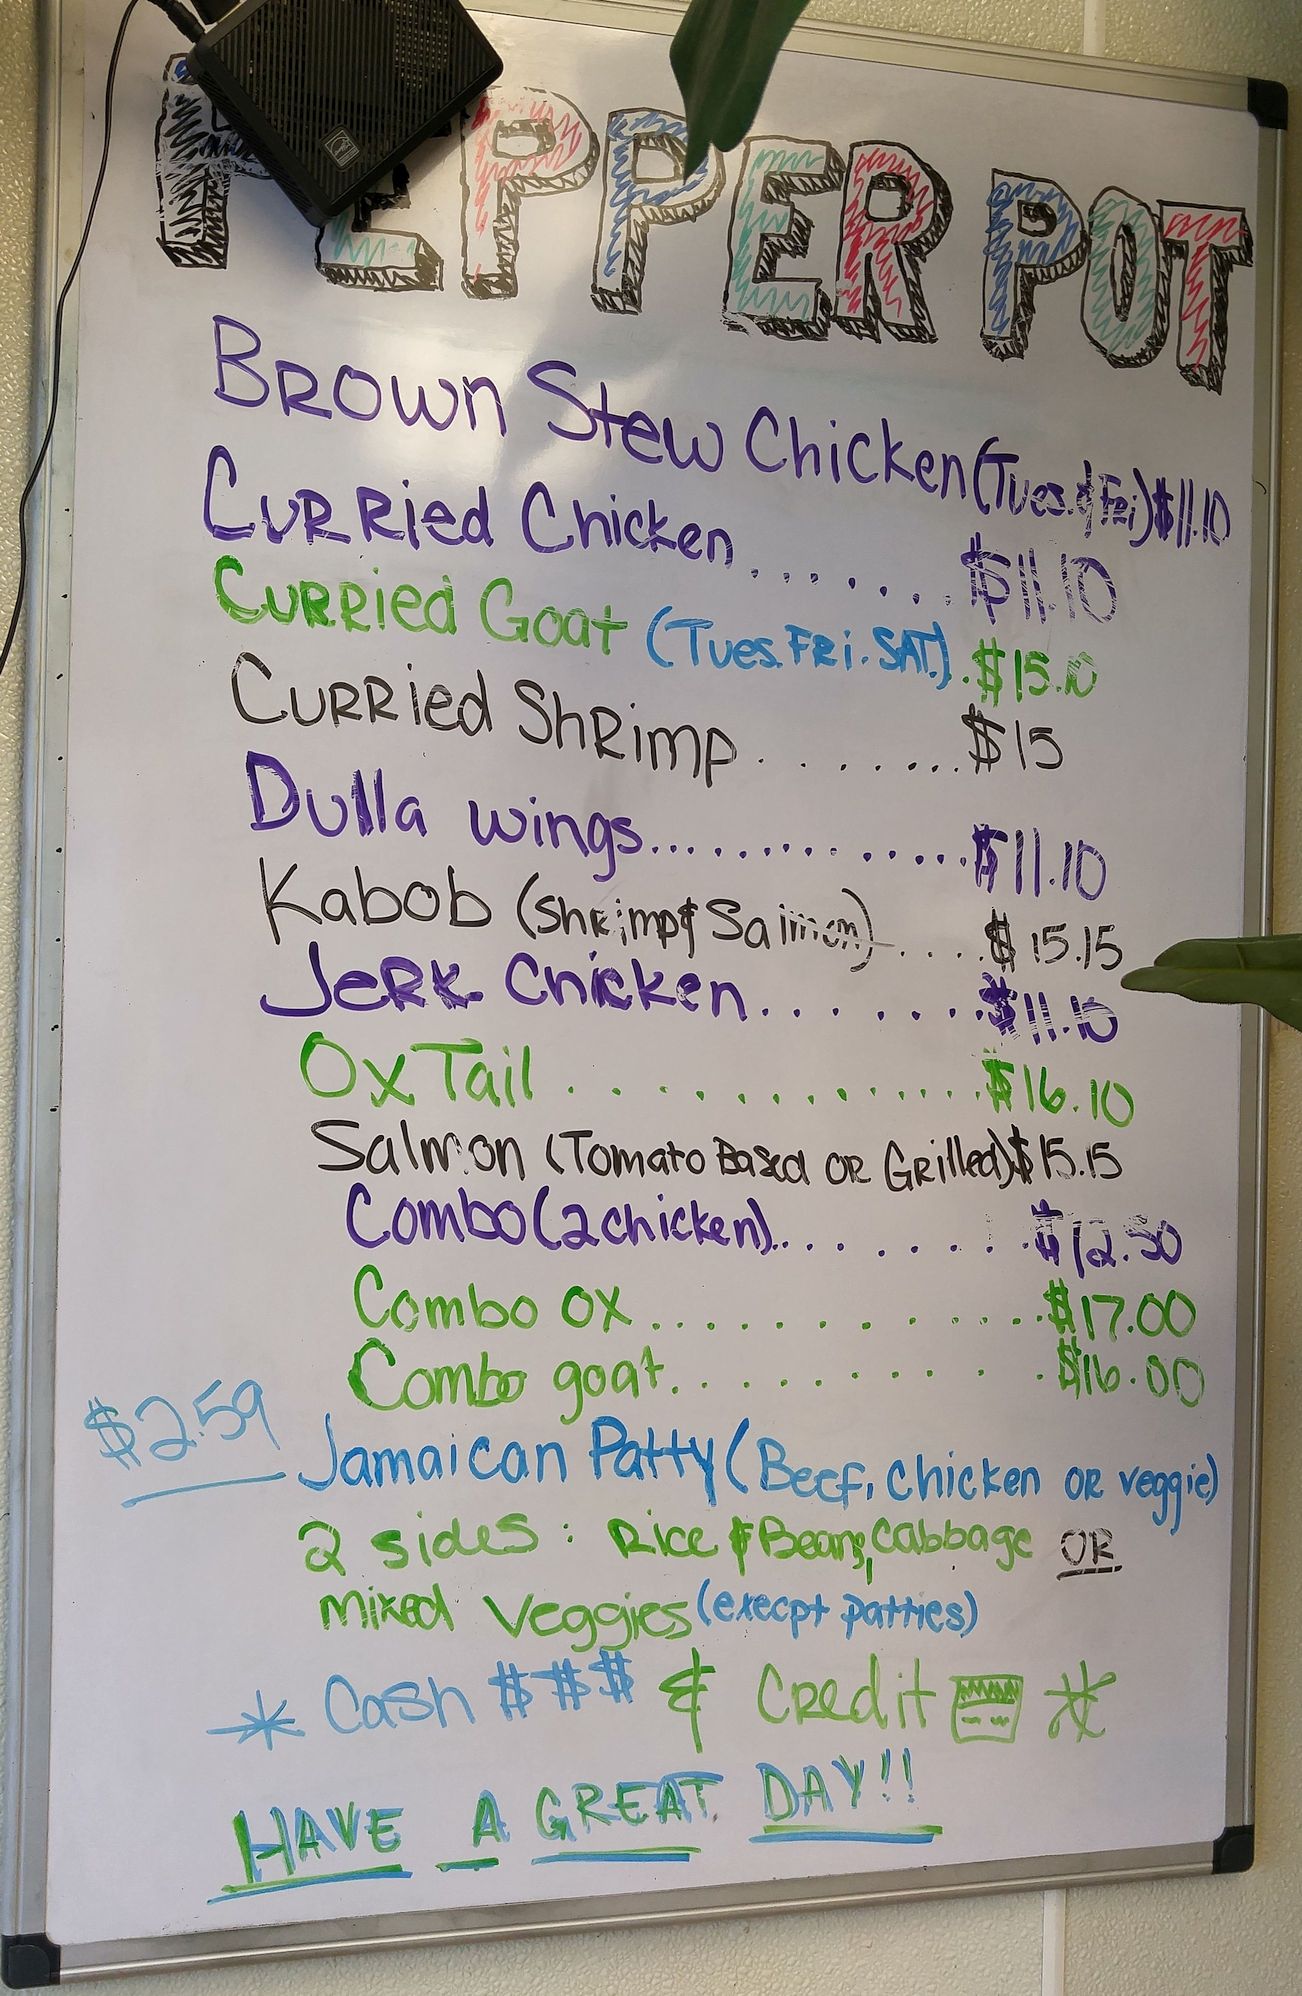 PEPPER POT
Brown Stew Chicken (Tues. & Fri) $11.10
Curried Chicken ........ $11.10
Curried Goat (Tues. Fri. SAT.) . $15.10
Curried Shrimp ........ $15
Dulla wings .............. $11.10
Kabob (Shrimp & Salmon) ..... $15.15
Jerk Chicken ........ $11.10
Ox Tail ............ $16.10
Salmon (Tomato Based or Grilled) $15.15
Combo (2 chicken) ........ $12.50
Combo ox ............. $17.00
Combo goat ........... $16.00
$2.59 Jamaican Patty (Beef, Chicken or veggie)
2 sides : Rice & Beans, Cabbage OR
mixed Veggies (execpt patties)
* Cash $$$ & Credit *
HAVE A GREAT DAY!!